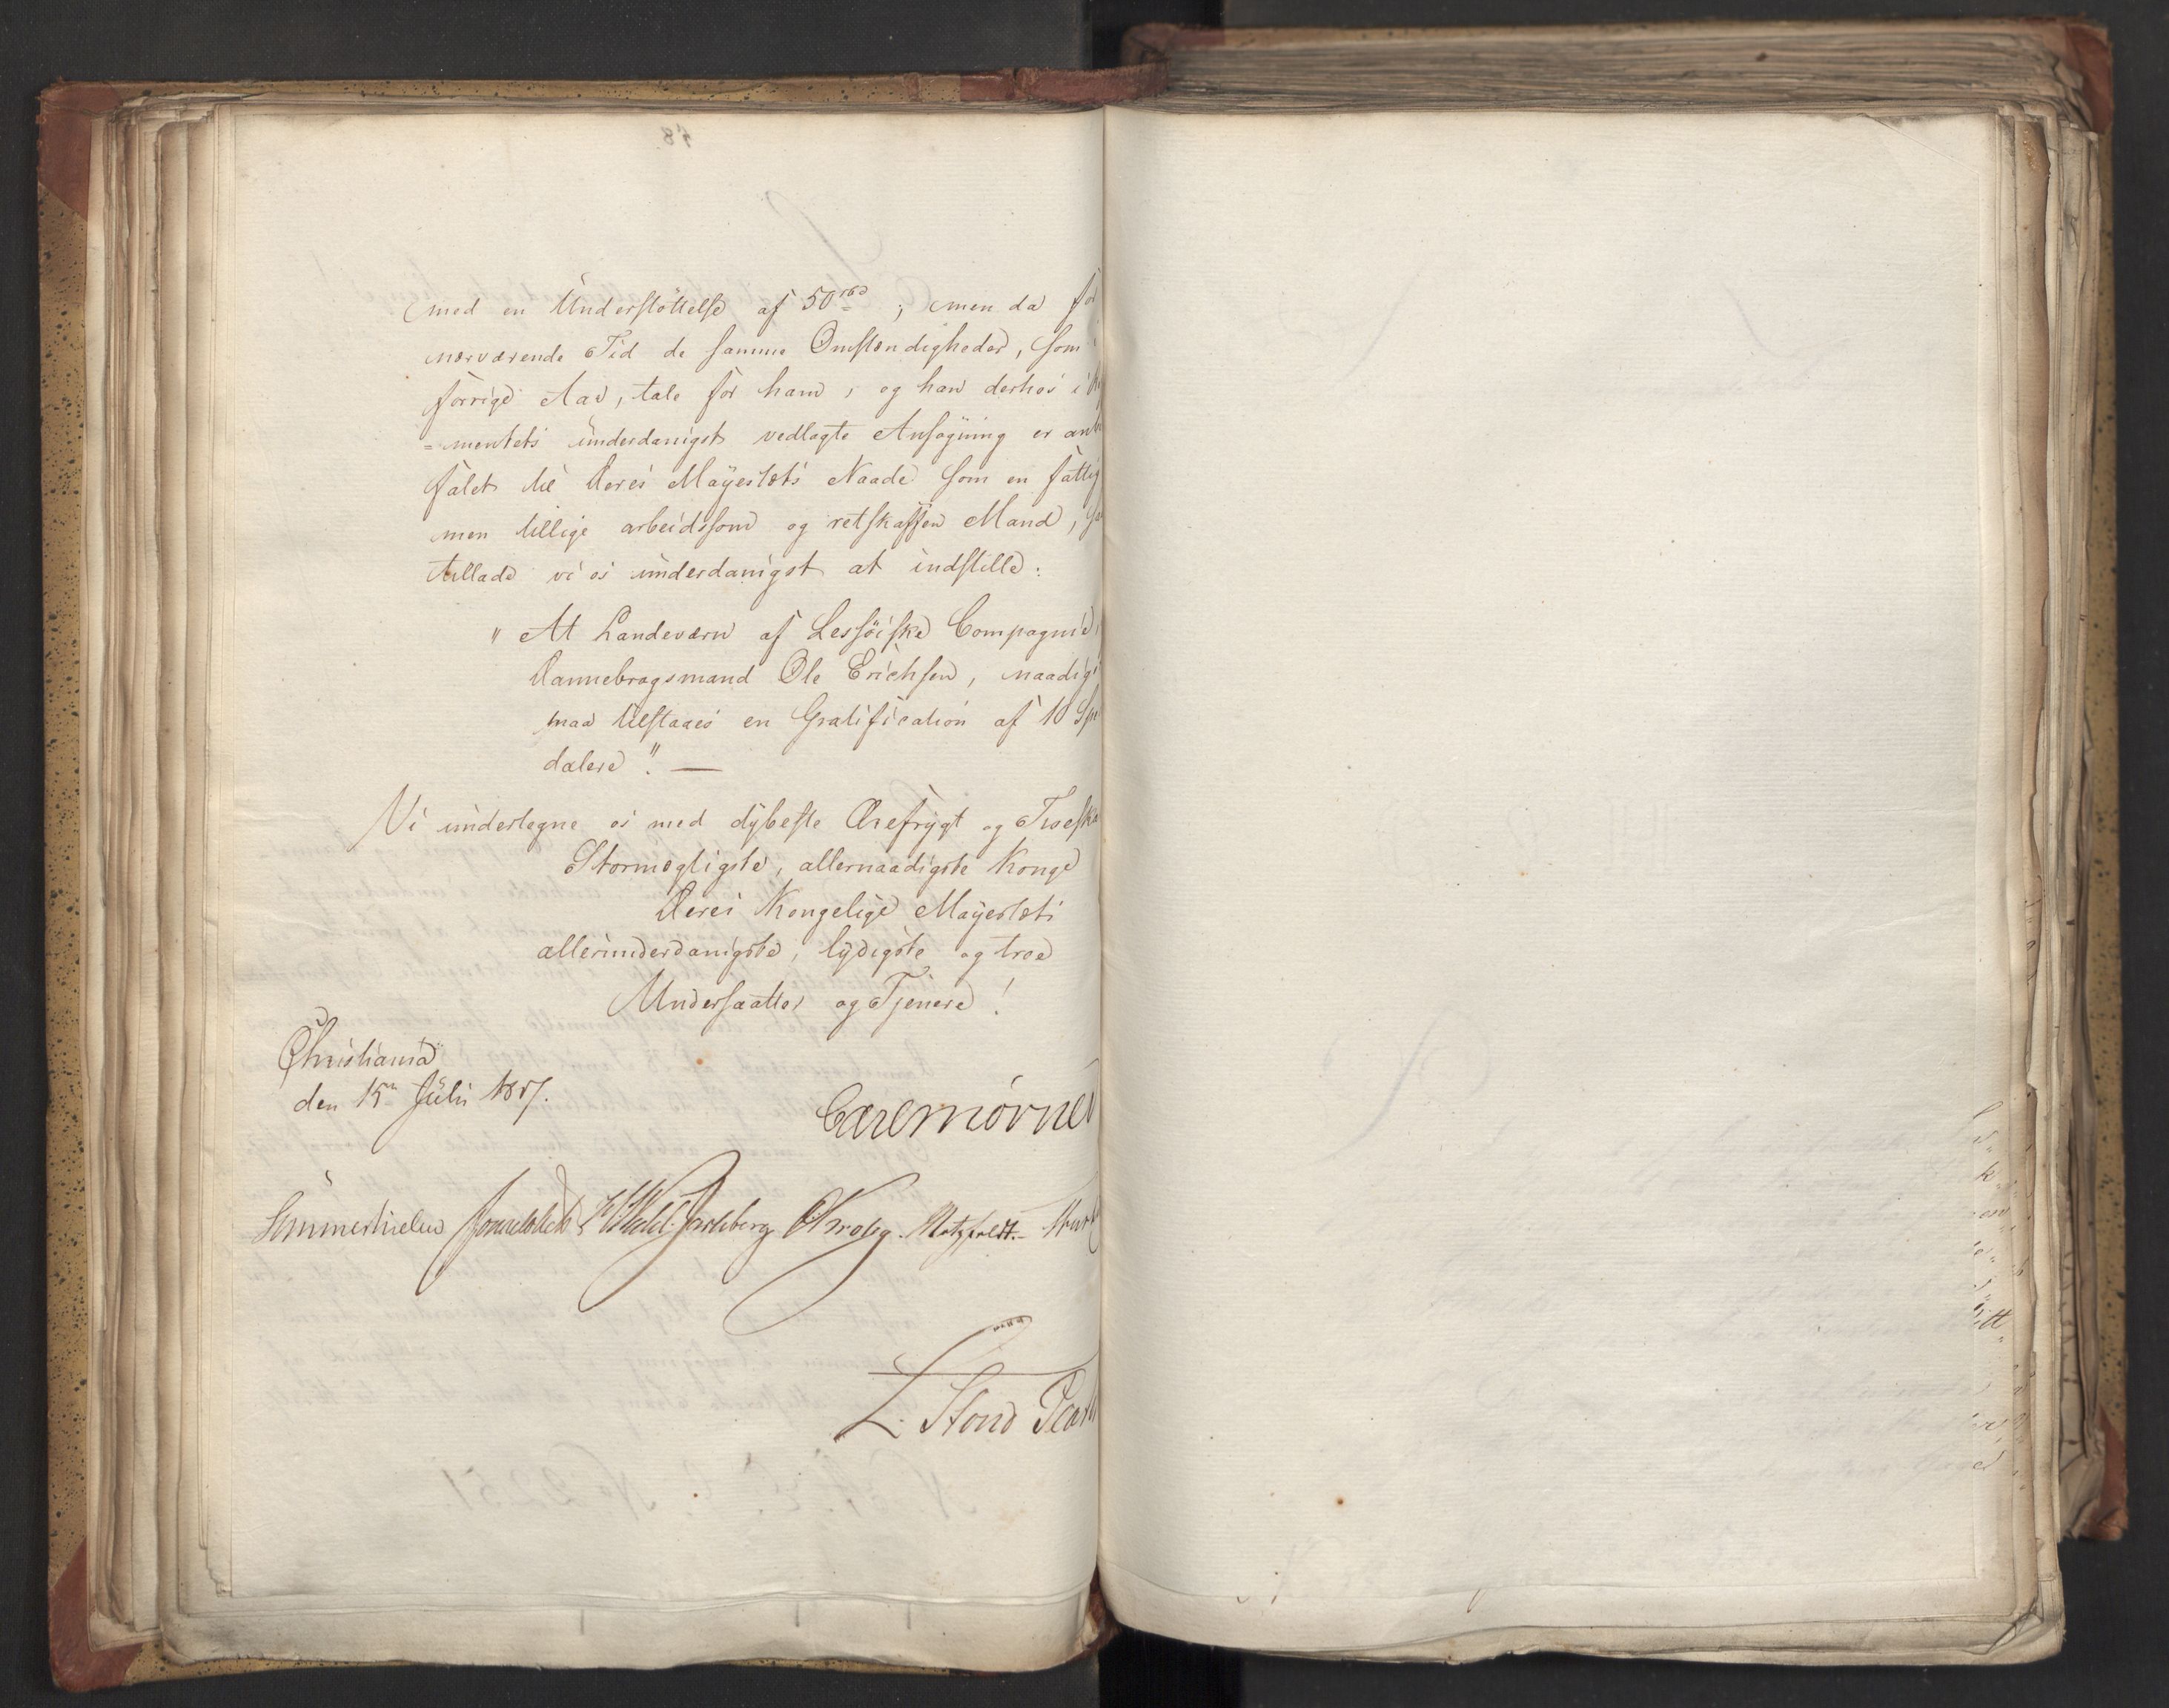 med en Understöttelse af 50 rbd; men da for
nærværende Tid de samme Omstændigheder, som i
forrige Aar, tale for ham, og han derhos i
=mentets underdanigst vedlagte Ansøgning er anbe
falet til Deres Mayestæts Naade som en fattig
men tillige arbeidssom og retskaffen Mand, saa
tillade vi os underdanigst at indstille:
"At Landeværn af Lessöiske Compagnie,
Dannebrogsmand Ole Erichsen, naadigst
maa tilstaaes en Gratification af 10 Spe
daler". —
Vi undertegne os med dybeste Ærefrygt og Troska
Stormægtigste, allernaadigste Konge
Deres Kongelige Mayestæts
allerunderdanigste, lydigste og troe
Undersaatter og Tjenere!
Christiania
den 15n Julii 1817.
Carl Mörner
Sommerhielm Krohg. Motzfeldt.
L. Stoud Plat